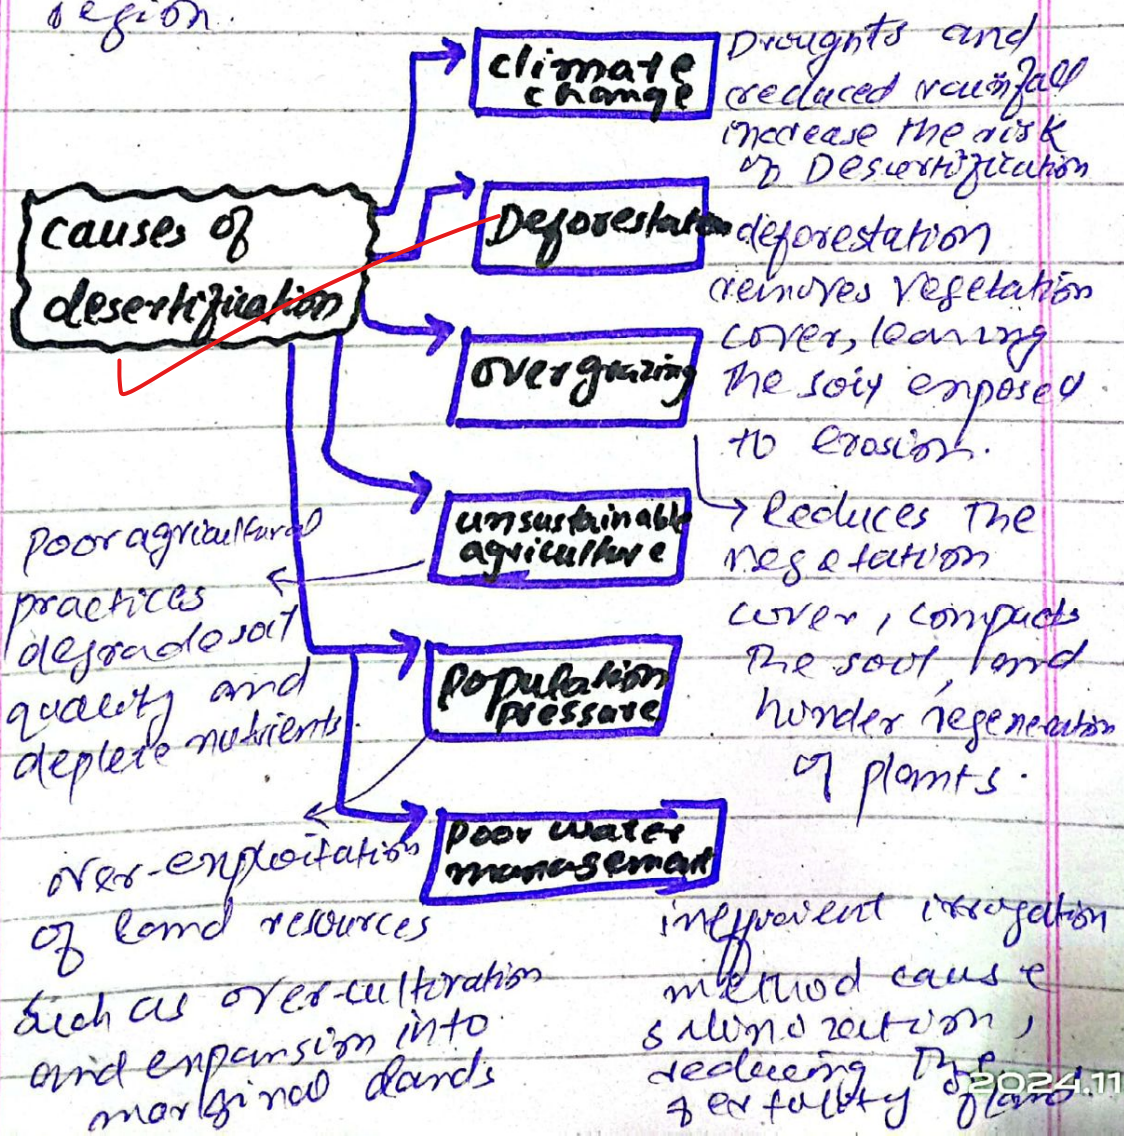 region.
climate
change
Droughts and
reduced rainfall
increase the risk
of Desertification
causes of
desertification
Deforestation
deforestation
removes vegetation
cover, leaving
the soil exposed
to erosion.
overgrazing
Reduces the
vegetation
cover, compacts
the soil, and
hinder regeneration
of plants.
unsustainable
agriculture
poor agricultural
practices
degrade soil
quality and
deplete nutrients.
population
pressure
over-exploitation
of land resources
such as over-cultivation
and expansion into
marginal lands
poor water
management
inefficient irrigation
method cause
salinization,
reducing the
fertility of land.
2024.11